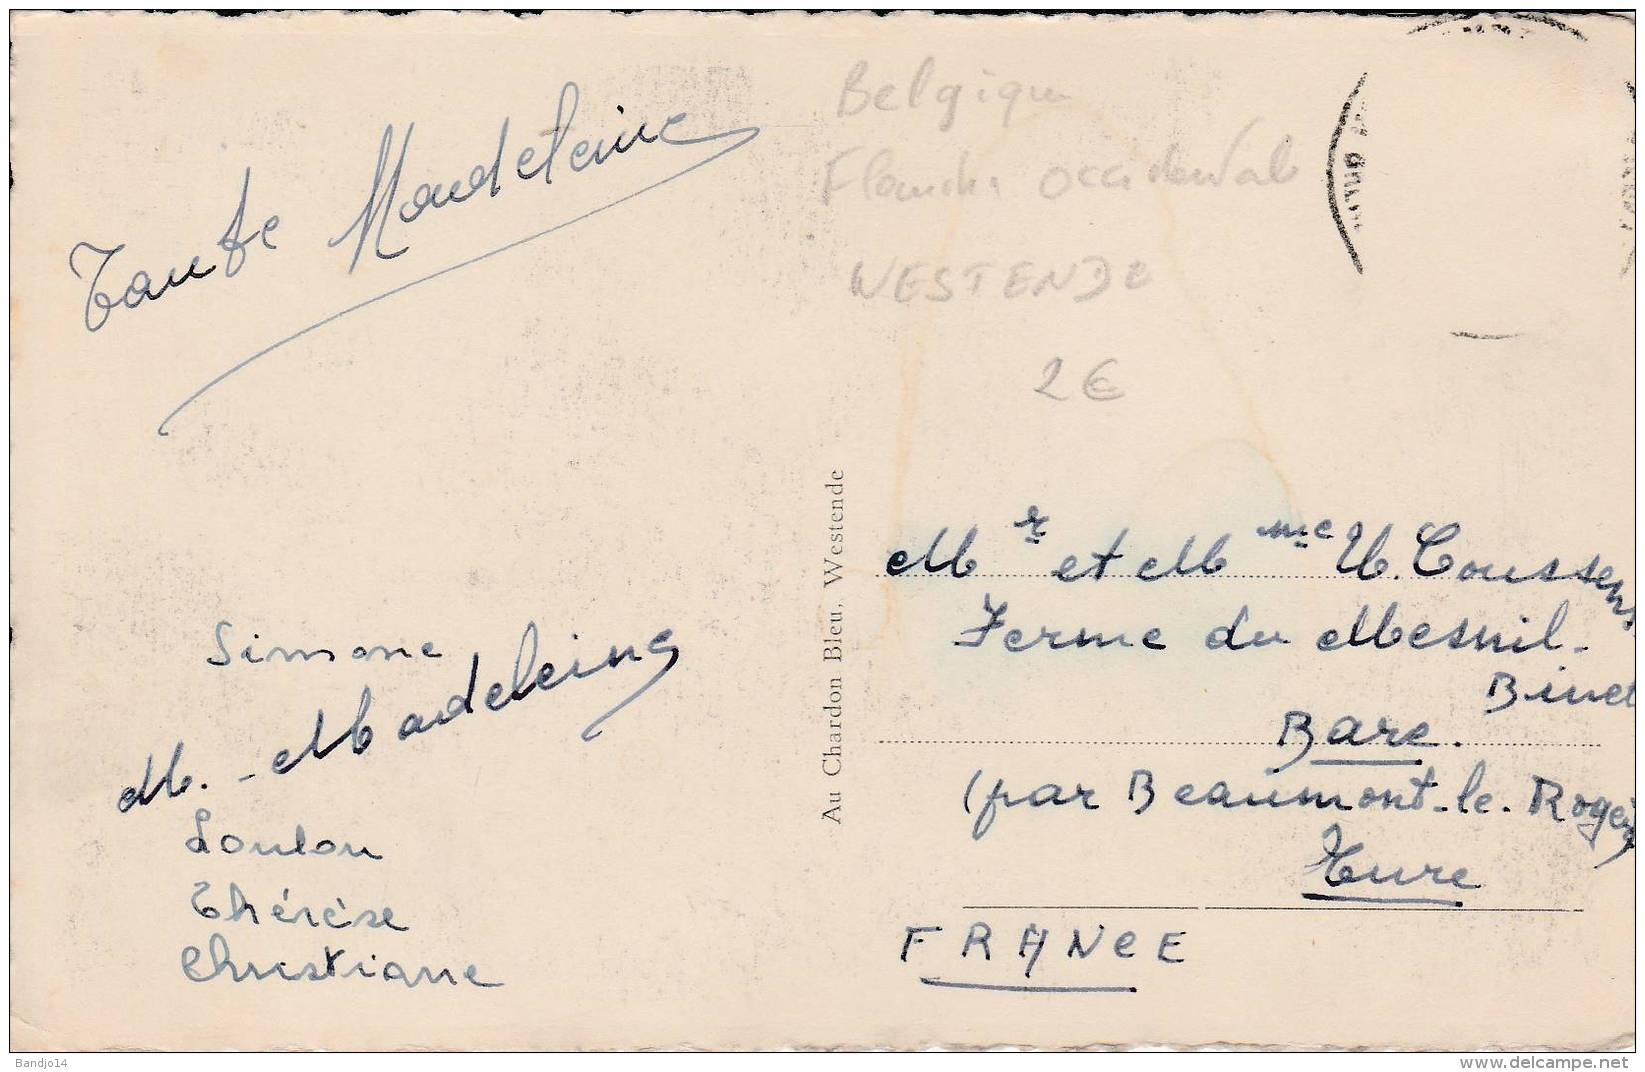 Tante Madeleine
Simone
M.-Madeleine
Loulou
Thérèse
Christiane
Au Chardon Bleu, Westende
Belgique
Flandre Occidentale
WESTENDE
2€
Mr et Mme U. Coussens
Ferme du Mesnil-
Binet
Bare.
(par Beaumont-le-Roger)
Eure
FRANCE
Bandjo14
www.delcampe.net